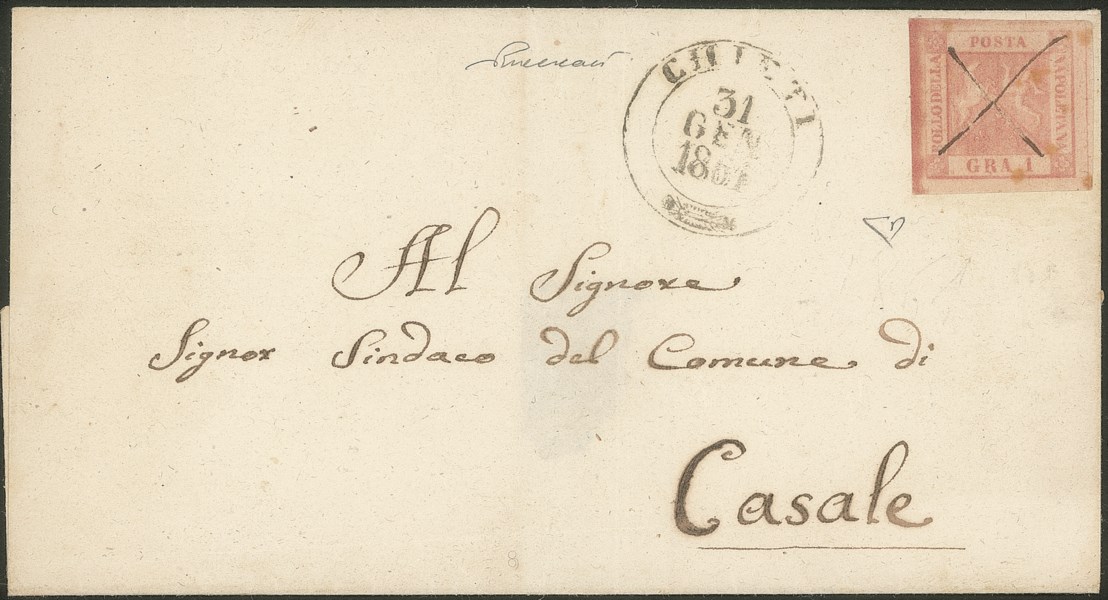 CHIETI
31
GEN
POSTA
NAPOLETANA
BOLLO DELLA
GRA 1
Al Signore
Signor Sindaco del Comune di
Casale
8